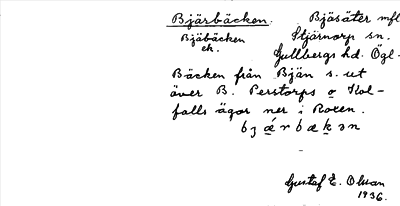 Bjärbäcken. Bjäsäter mfl
Bjäbäcken Stjärnorp sn.
ek. Gullbergs hd. Ögl.
Bäcken från Bjän s. ut
över B. Perstorps o Kol-
falls ägor ner i Roxen.
Gustaf E. Olsson
1936.